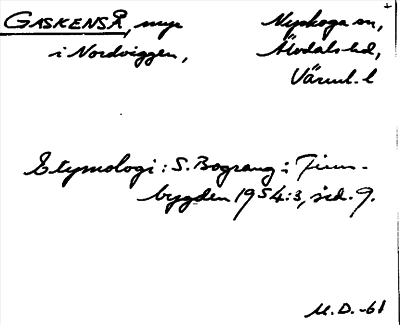 GASKENSÅ, myr Nyskoga sn,
i Nordviggen, Älvdals hd,
Värml. l
Etymologi: S. Bograng i Finn-
bygden 1954:3, sid. 9.
M.D. -61